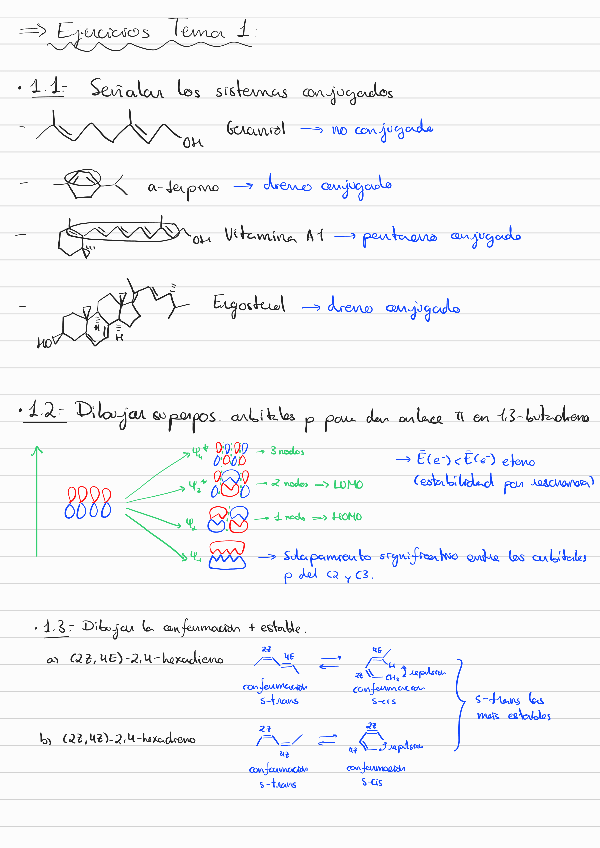 ⇒ Ejercicios Tema 1:
· 1.1- Señalar los sistemas conjugados
- OH Geraniol → no conjugado
- α-terpino → dieno conjugado
- OH Vitamina A1 → pentaeno conjugado
- HO H H Ergosterol → dieno conjugado
· 1.2- Dibujar superpos. orbitales p para dar enlace π en 1,3-butadieno
ψ₄* → 3 nodos
ψ₃* → 2 nodos → LUMO
ψ₂ → 1 nodo → HOMO
ψ₁ → Solapamiento significativo entre los orbitales
p del C2 y C3.
→ Ē(e⁻) < Ē(e⁻) eteno
(estabilidad por resonancia)
· 1.3- Dibujar la conformación + estable.
a) (2Z,4E)-2,4-hexadieno
2Z 4E ⇌ 4E 2Z H CH₃ repulsion
conformación s-trans
conformación s-cis
b) (2Z,4Z)-2,4-hexadieno
2Z 4Z ⇌ 2Z 4Z repulsion
conformación s-trans
conformación s-cis
s-trans las
más estables